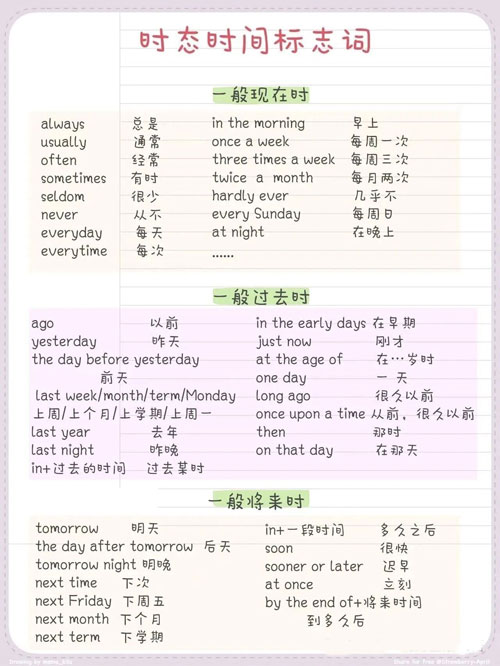 时态时间标志词
一般现在时
always 总是 in the morning 早上
usually 通常 once a week 每周一次
often 经常 three times a week 每周三次
sometimes 有时 twice a month 每月两次
seldom 很少 hardly ever 几乎不
never 从不 every Sunday 每周日
everyday 每天 at night 在晚上
everytime 每次 ......
一般过去时
ago 以前 in the early days 在早期
yesterday 昨天 just now 刚才
the day before yesterday at the age of 在…岁时
前天 one day 一天
last week/month/term/Monday long ago 很久以前
上周/上个月/上学期/上周一 once upon a time 从前，很久以前
last year 去年 then 那时
last night 昨晚 on that day 在那天
in+过去的时间 过去某时
一般将来时
tomorrow 明天 in+一段时间 多久之后
the day after tomorrow 后天 soon 很快
tomorrow night 明晚 sooner or later 迟早
next time 下次 at once 立刻
next Friday 下周五 by the end of+将来时间
next month 下个月 到多久后
next term 下学期